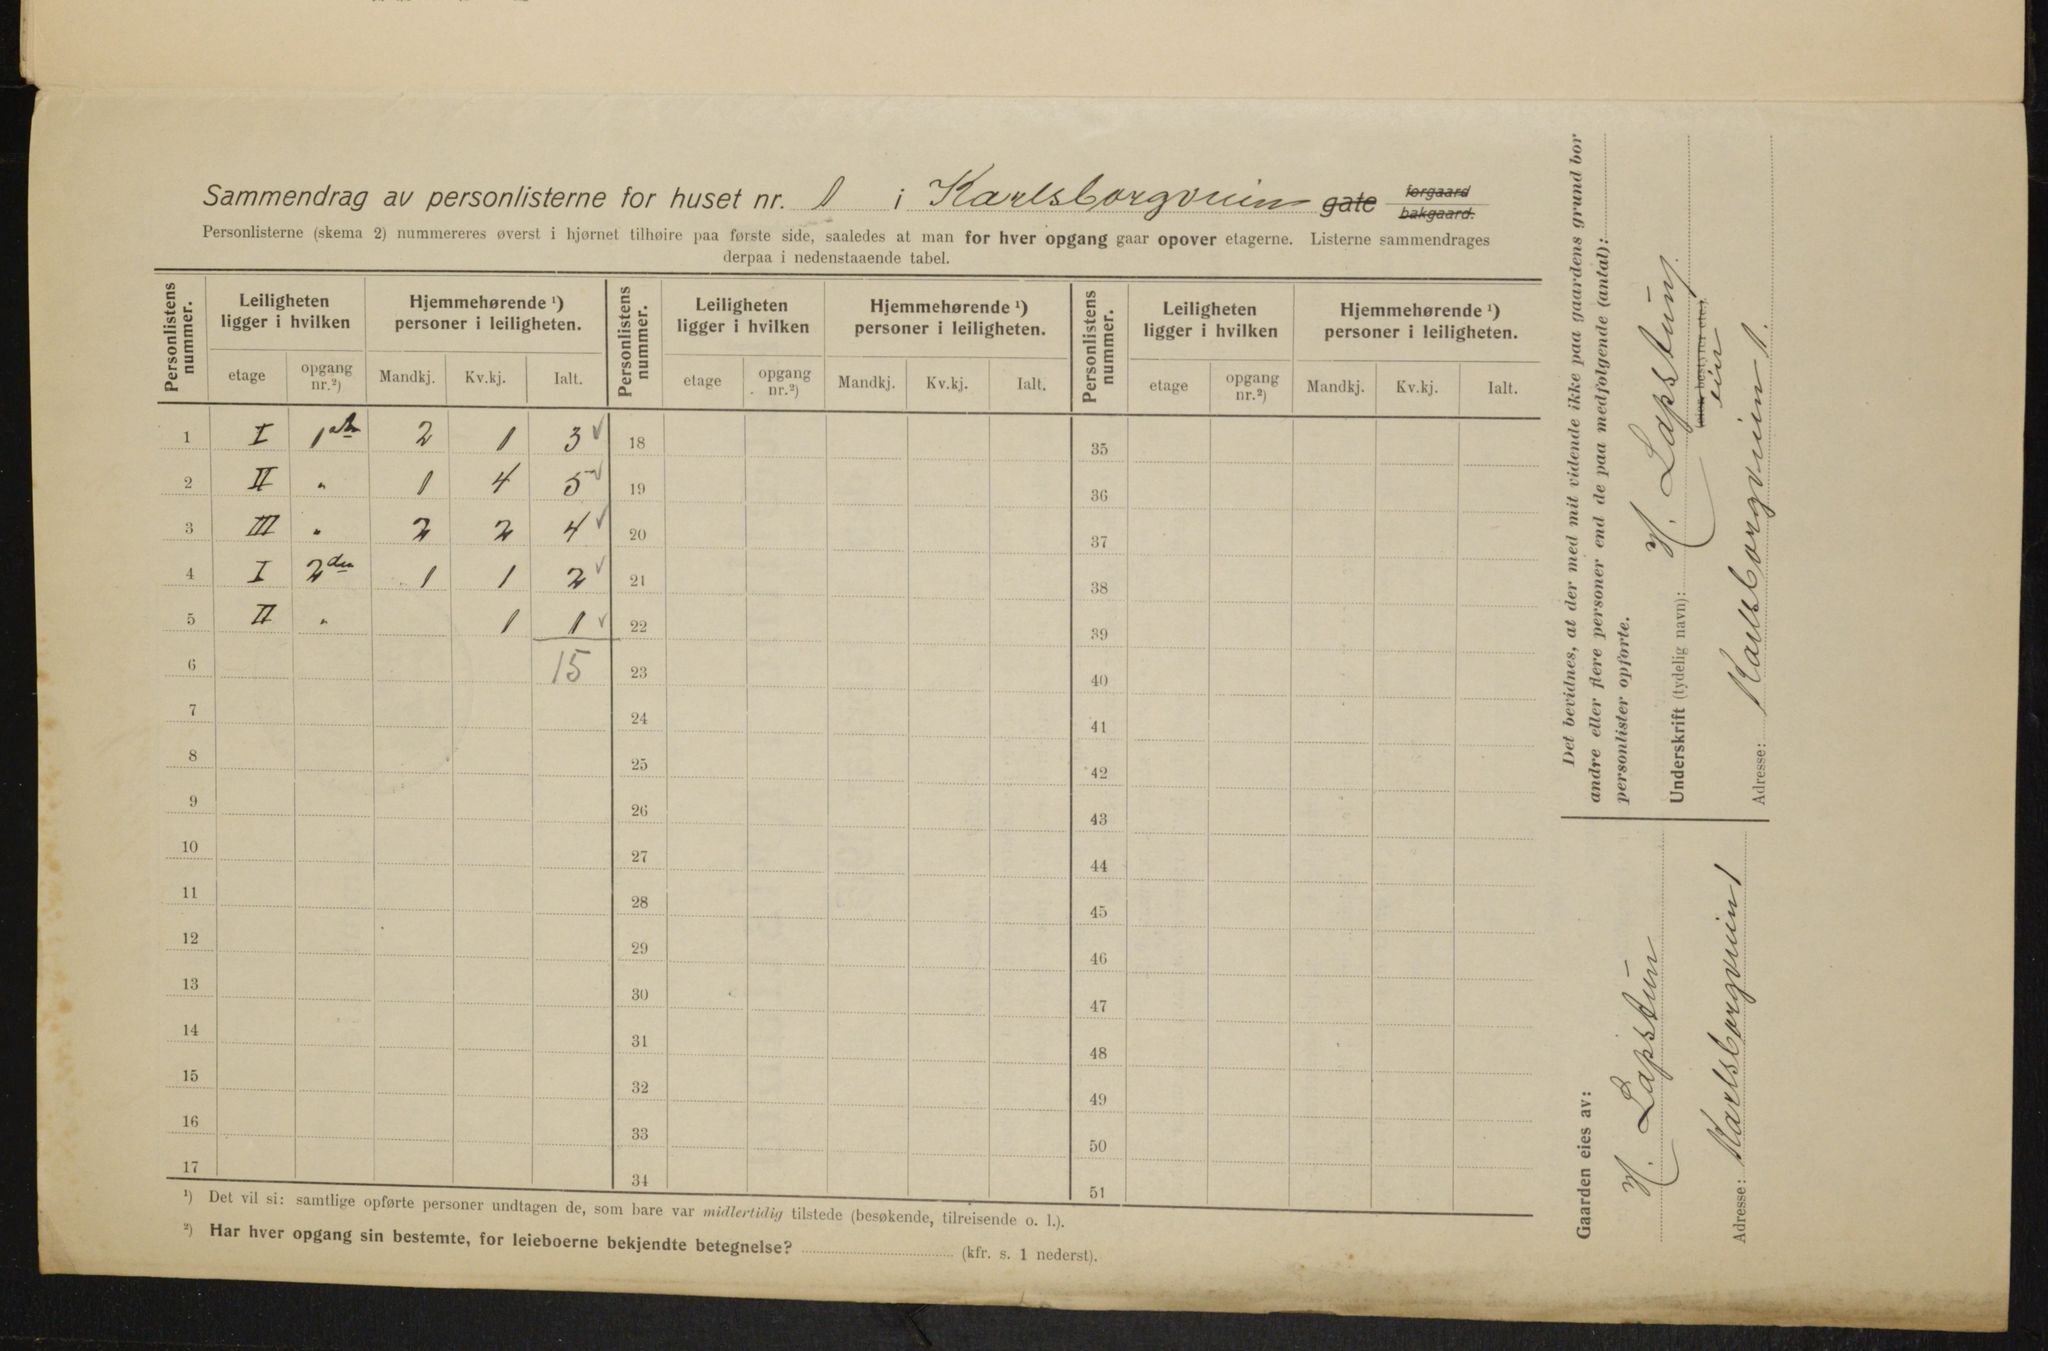 Sammendrag av personlisterne for huset nr. 1 i Karlsborgveien gate forgaard bakgaard.
Personlisterne (skema 2) nummereres øverst i hjørnet tilhøire paa første side, saaledes at man for hver opgang gaar opover etagerne. Listerne sammendrages
derpaa i nedenstaaende tabel.
Personlistens nummer. Leiligheten ligger i hvilken Hjemmehørende ¹) personer i leiligheten. Personlistens nummer. Leiligheten ligger i hvilken Hjemmehørende ¹) personer i leiligheten. Personlistens nummer. Leiligheten ligger i hvilken Hjemmehørende ¹) personer i leiligheten.
etage opgang nr.²) Mandkj. Kv.kj. Ialt. etage opgang nr.²) Mandkj. Kv.kj. Ialt. etage opgang nr.²) Mandkj. Kv.kj. Ialt.
1 I 1ste 2 1 3 18 35
2 II " 1 4 5 19 36
3 III " 2 2 4 20 37
4 I 2den 1 1 2 21 38
5 II " 1 1 22 39
6 15 23 40
7 24 41
8 25 42
9 26 43
10 27 44
11 28 45
12 29 46
13 30 47
14 31 48
15 32 49
16 33 50
17 34 51
¹) Det vil si: samtlige opførte personer undtagen de, som bare var midlertidig tilstede (besøkende, tilreisende o. l.).
²) Har hver opgang sin bestemte, for leieboerne bekjendte betegnelse? (kfr. s. 1 nederst).
Det bevidnes, at der med mit vidende ikke paa gaardens grund bor
andre eller flere personer end de paa medfølgende (antal):
personlister opførte.
Underskrift (tydelig navn): N. Lapstun
(eier, bestyrer etc.)
eier
Adresse: Karlsborgveien 1.
Gaarden eies av:
N. Lapstun
Adresse: Karlsborgveien 1